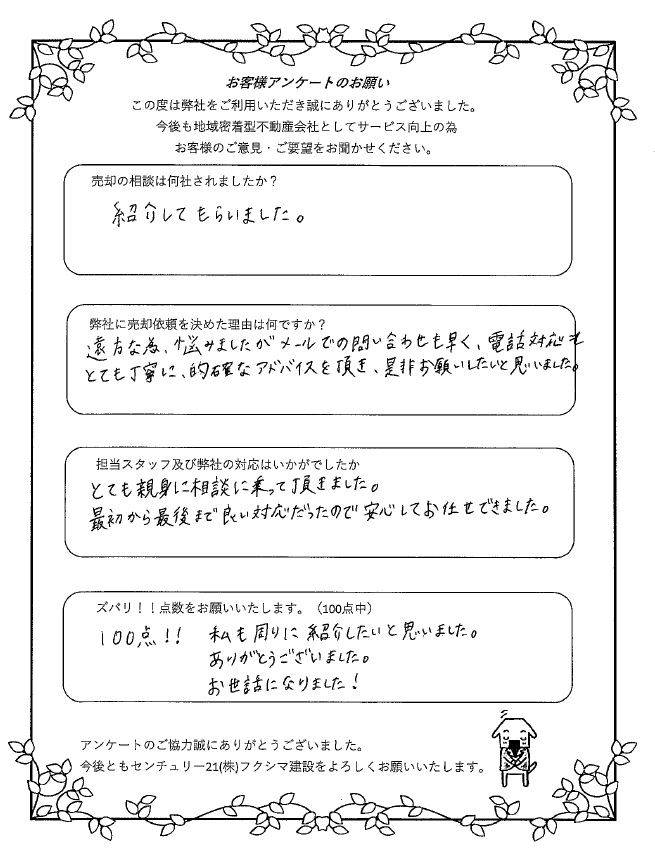 お客様アンケートのお願い
この度は弊社をご利用いただき誠にありがとうございました。
今後も地域密着型不動産会社としてサービス向上の為
お客様のご意見・ご要望をお聞かせください。
売却の相談は何社されましたか？
紹介してもらいました。
弊社に売却依頼を決めた理由は何ですか？
遠方な為、悩みましたがメールでの問い合わせも早く、電話対応も
とても丁寧に、的確なアドバイスを頂き、是非お願いしたいと思いました。
担当スタッフ及び弊社の対応はいかがでしたか
とても親身に相談に乗って頂きました。
最初から最後まで良い対応だったので安心してお任せできました。
ズバリ！！点数をお願いいたします。（100点中）
100点!! 私も周りに紹介したいと思いました。
ありがとうございました。
お世話になりました！
アンケートのご協力誠にありがとうございました。
今後ともセンチュリー21(株)フクシマ建設をよろしくお願いいたします。